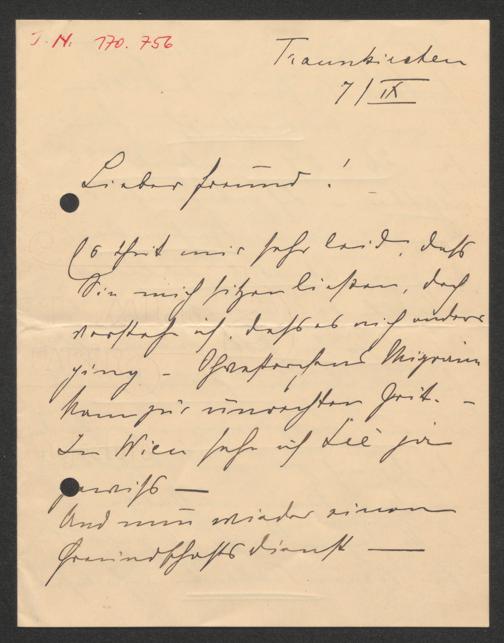 I. N. 170.756
Traunkirchen
7/IX
Lieber Freund!
Es thut mir sehr leid, dass
Sie mich sitzen liessen, doch
verstehe ich, dass es nicht anders
ging – Migräne
kam zur unrechten Zeit. –
In Wien sehe ich Sie ja
gewiss —
Und nun wieder einen
Freundschaftsdienst —